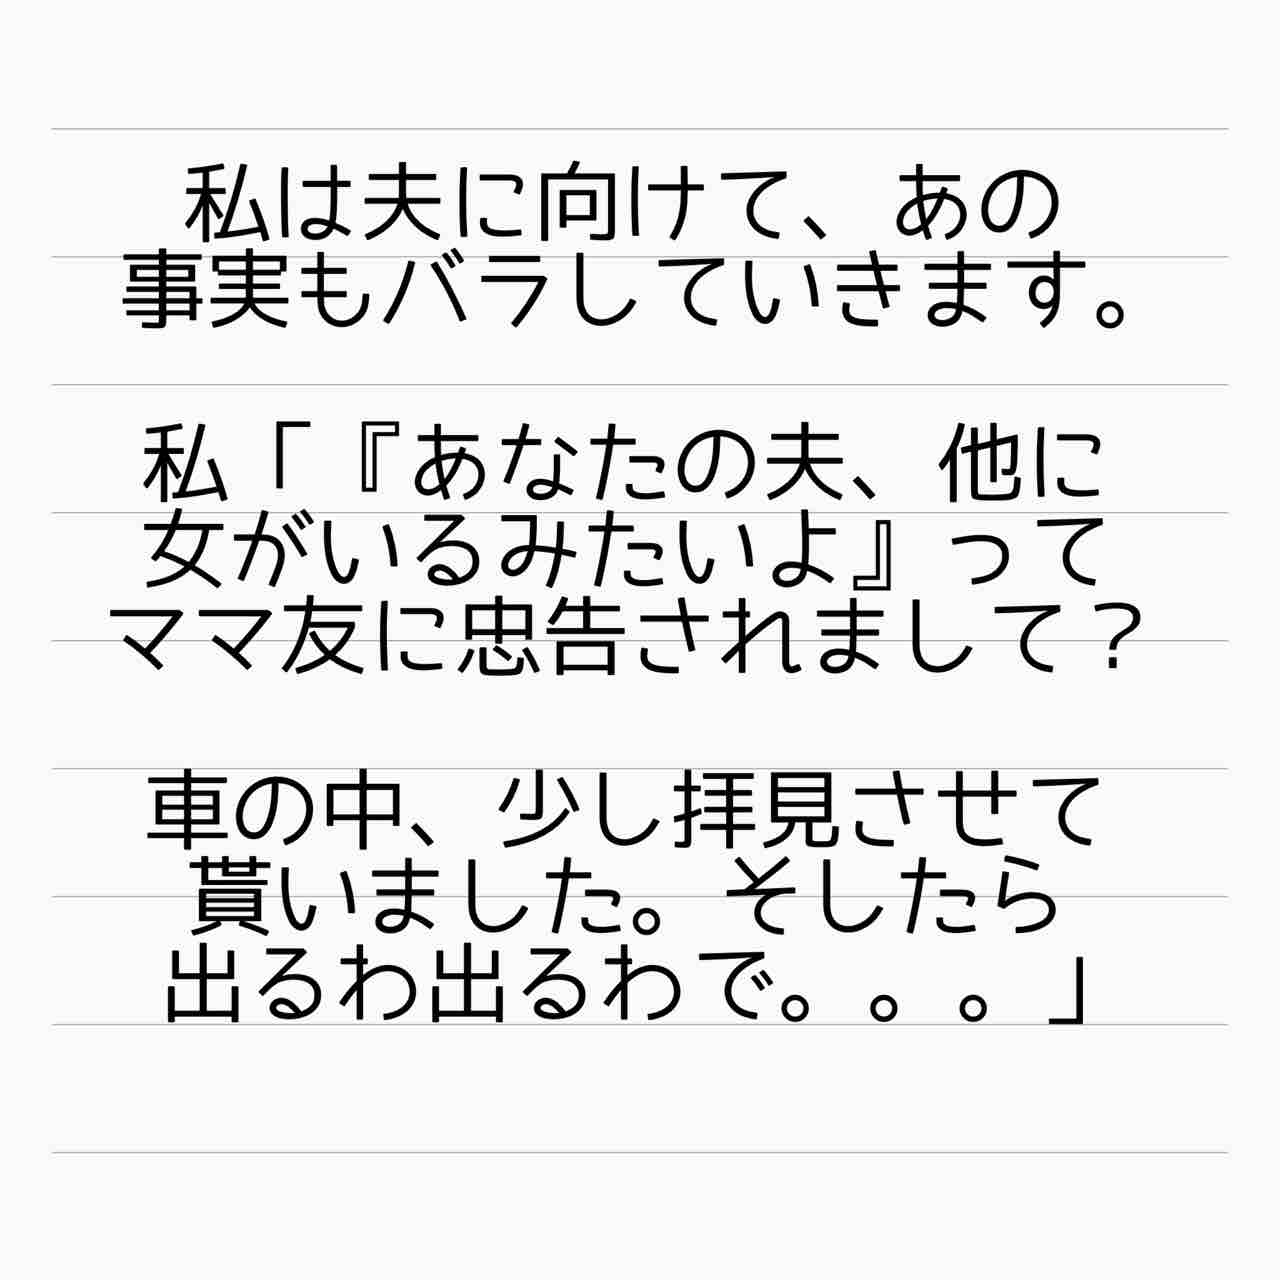 私は夫に向けて、あの
事実もバラしていきます。
私「『あなたの夫、他に
女がいるみたいよ』って
ママ友に忠告されまして？
車の中、少し拝見させて
貰いました。そしたら
出るわ出るわで。。。」